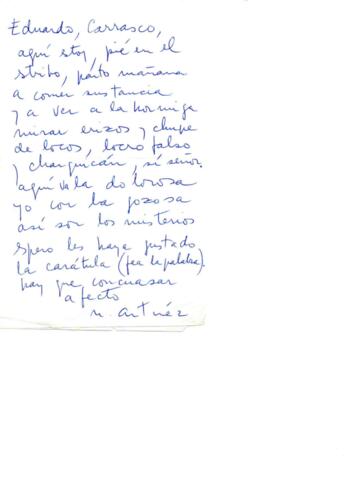 Eduardo, Carrasco,
aquí estoy, pié en el
stribo, parto mañana
a comer sustancia
y a ver a la hormiga
mirar erizos y chupe
de locos, locro falso
y charquicán, sí señor.
aquí va la dolorosa
yo con la gozosa
así son los misterios
spero les haya gustado
la carátula (fea la palabra).
hay que
afecto
n. antúnez